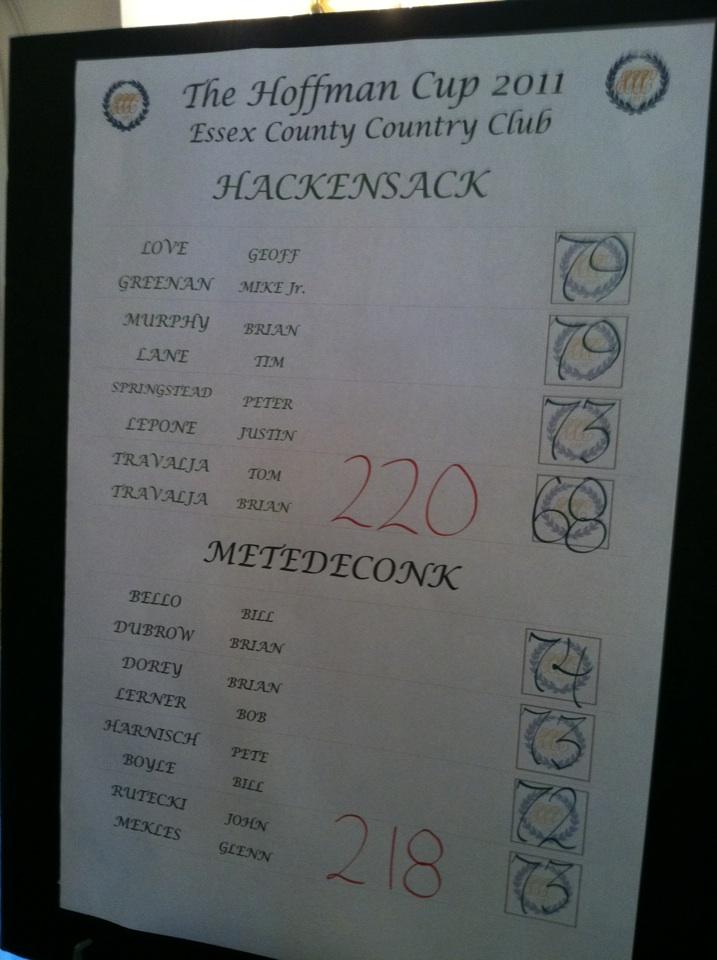 The Hoffman Cup 2011
Essex County Country Club
HACKENSACK
LOVE GEOFF 79
GREENAN MIKE Jr.
MURPHY BRIAN 79
LANE TIM
SPRINGSTEAD PETER 73
LEPONE JUSTIN
TRAVALJA TOM 220 68
TRAVALJA BRIAN
METEDECONK
BELLO BILL 74
DUBROW BRIAN
DOREY BRIAN 73
LERNER BOB
HARNISCH PETE 72
BOYLE BILL
RUTECKI JOHN 218 73
MEKLES GLENN